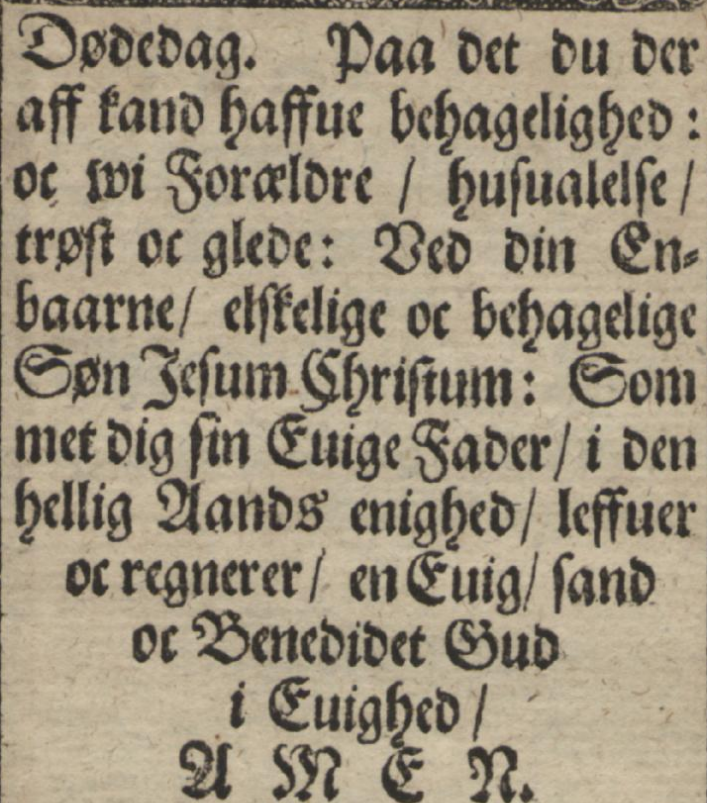 Dødedag. Paa det du der
aff kand haffue behagelighed:
oc wi Forældre / husualelse /
trøst oc glede: Ved din En-
baarne/ elskelige oc behagelige
Søn Jesum Christum: Som
met dig sin Euige Fader/ i den
hellig Aands enighed/ leffuer
oc regnerer/ en Euig/ sand
oc Benedidet Gud
i Euighed/
A M E N.